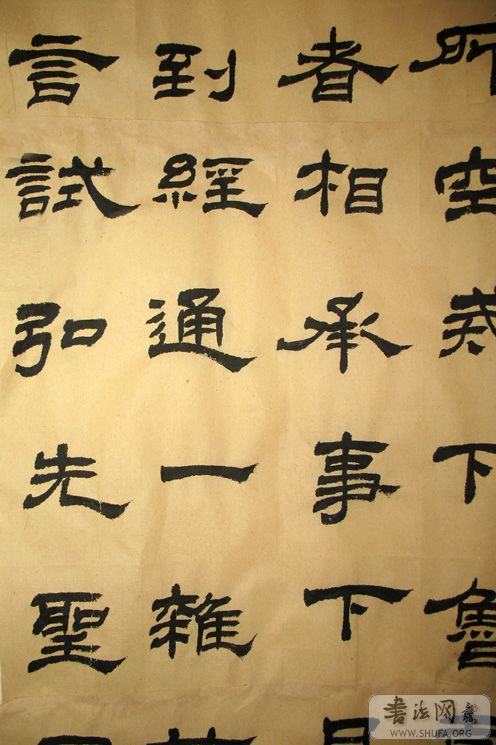 所空戒下魯
者相承事下
到經通一雜
言試弘先聖
書法网
WWW.SHUFA.ORG